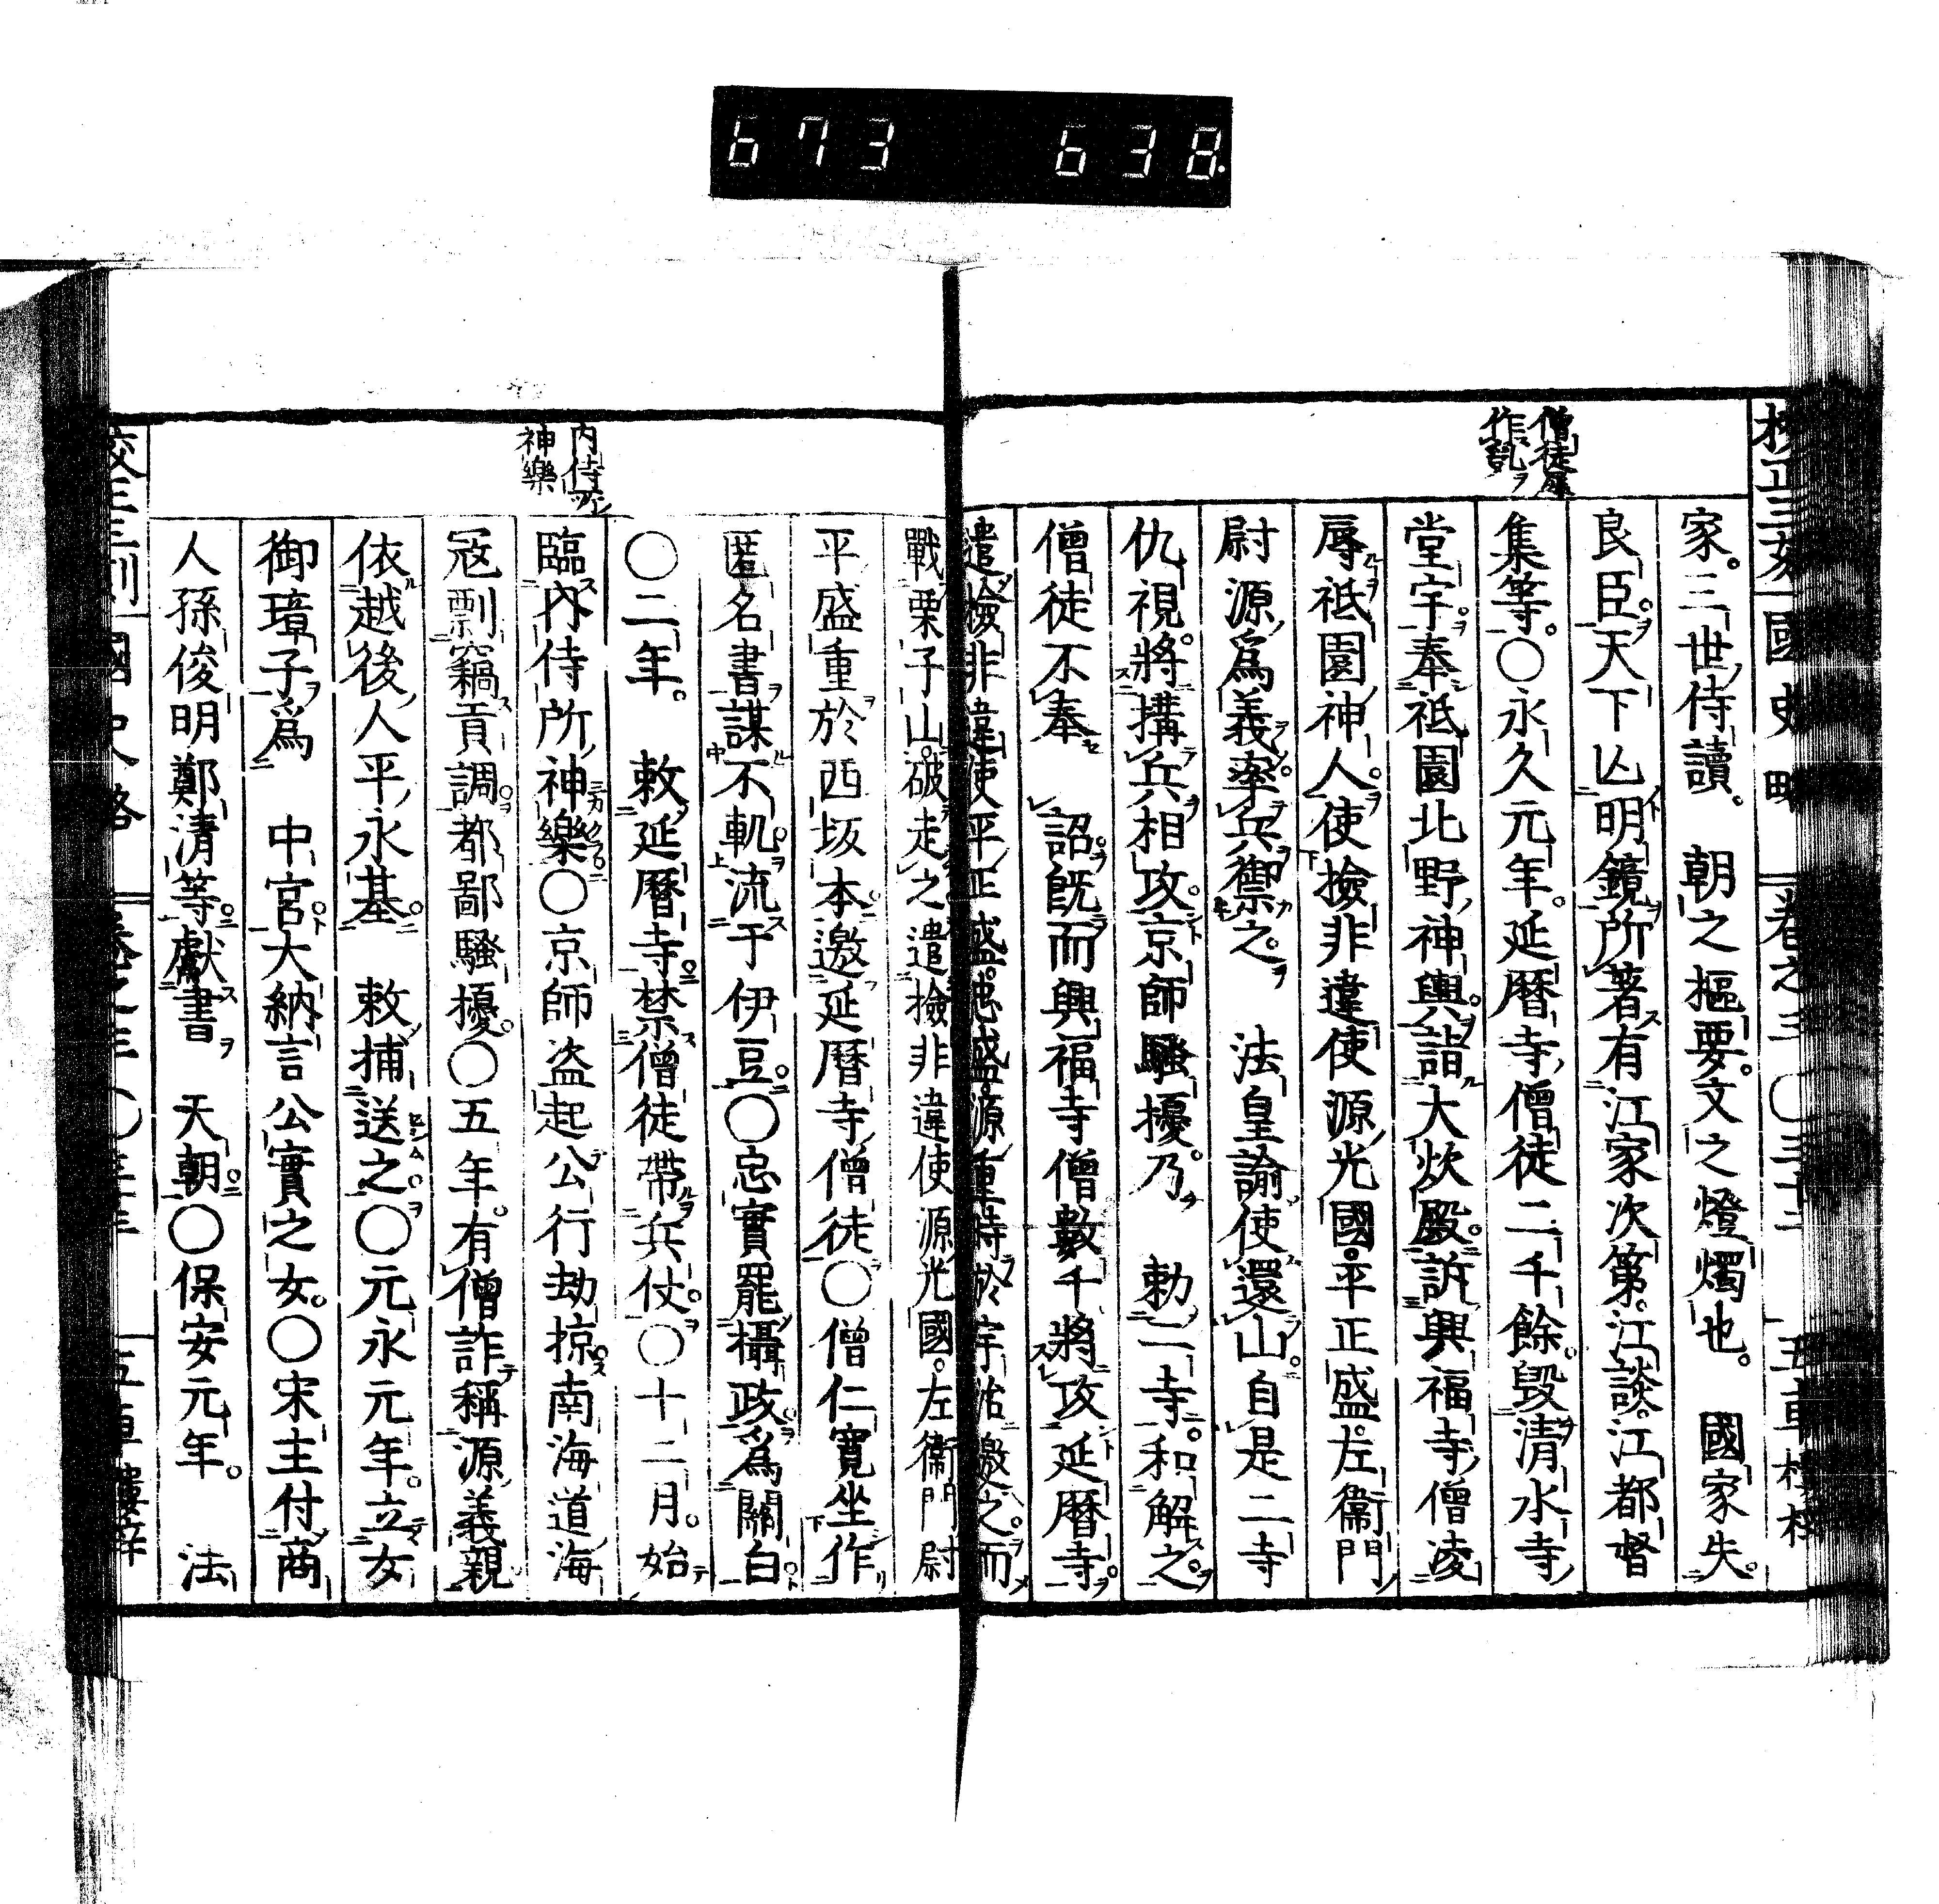 673 638.
國史略 卷之三 〇三十二 五車樓梓
僧徒屢
作亂
家。三世侍讀。 朝之樞要。文之燈燭也。 國家失
良臣。天下亾明鏡。所著有江家次第。江談。江都督
集等。〇永久元年。延暦寺僧徒二千餘。毀清水寺
堂宇。奉祗園北野神輿。詣大炊殿。訴興福寺僧凌
辱祗園神人。使撿非違使源光國。平正盛。左衞門
尉源爲義。率兵禦之。 法皇諭使還山。自是二寺
仇視。將搆兵相攻。京師騷擾。乃 勅二寺。和解之。
僧徒不奉 詔。既而興福寺僧數千將攻延暦寺。
遣撿非違使平正盛。忠盛。源重時於宇治邀之。而
戰栗子山。破走之。遣撿非違使源光國。左衞門尉
平盛重於西坂本。邀延暦寺僧徒。〇僧仁寛坐作
匿名書謀不軌。流于伊豆。〇忠實罷攝政。爲關白。
〇二年。 敕延暦寺。禁僧徒帶兵仗。〇十二月。始
臨內侍所神樂。〇京師盗起。公行劫掠。南海道海
冦剽竊貢調。都鄙騷擾。〇五年。有僧詐稱源義親
依越後人平永基。 敕捕送之。〇元永元年。立女
御璋子爲 中宮。大納言公實之女。〇宋主付商
人孫俊明鄭清等。獻書 天朝。〇保安元年。 法
內侍所
神樂